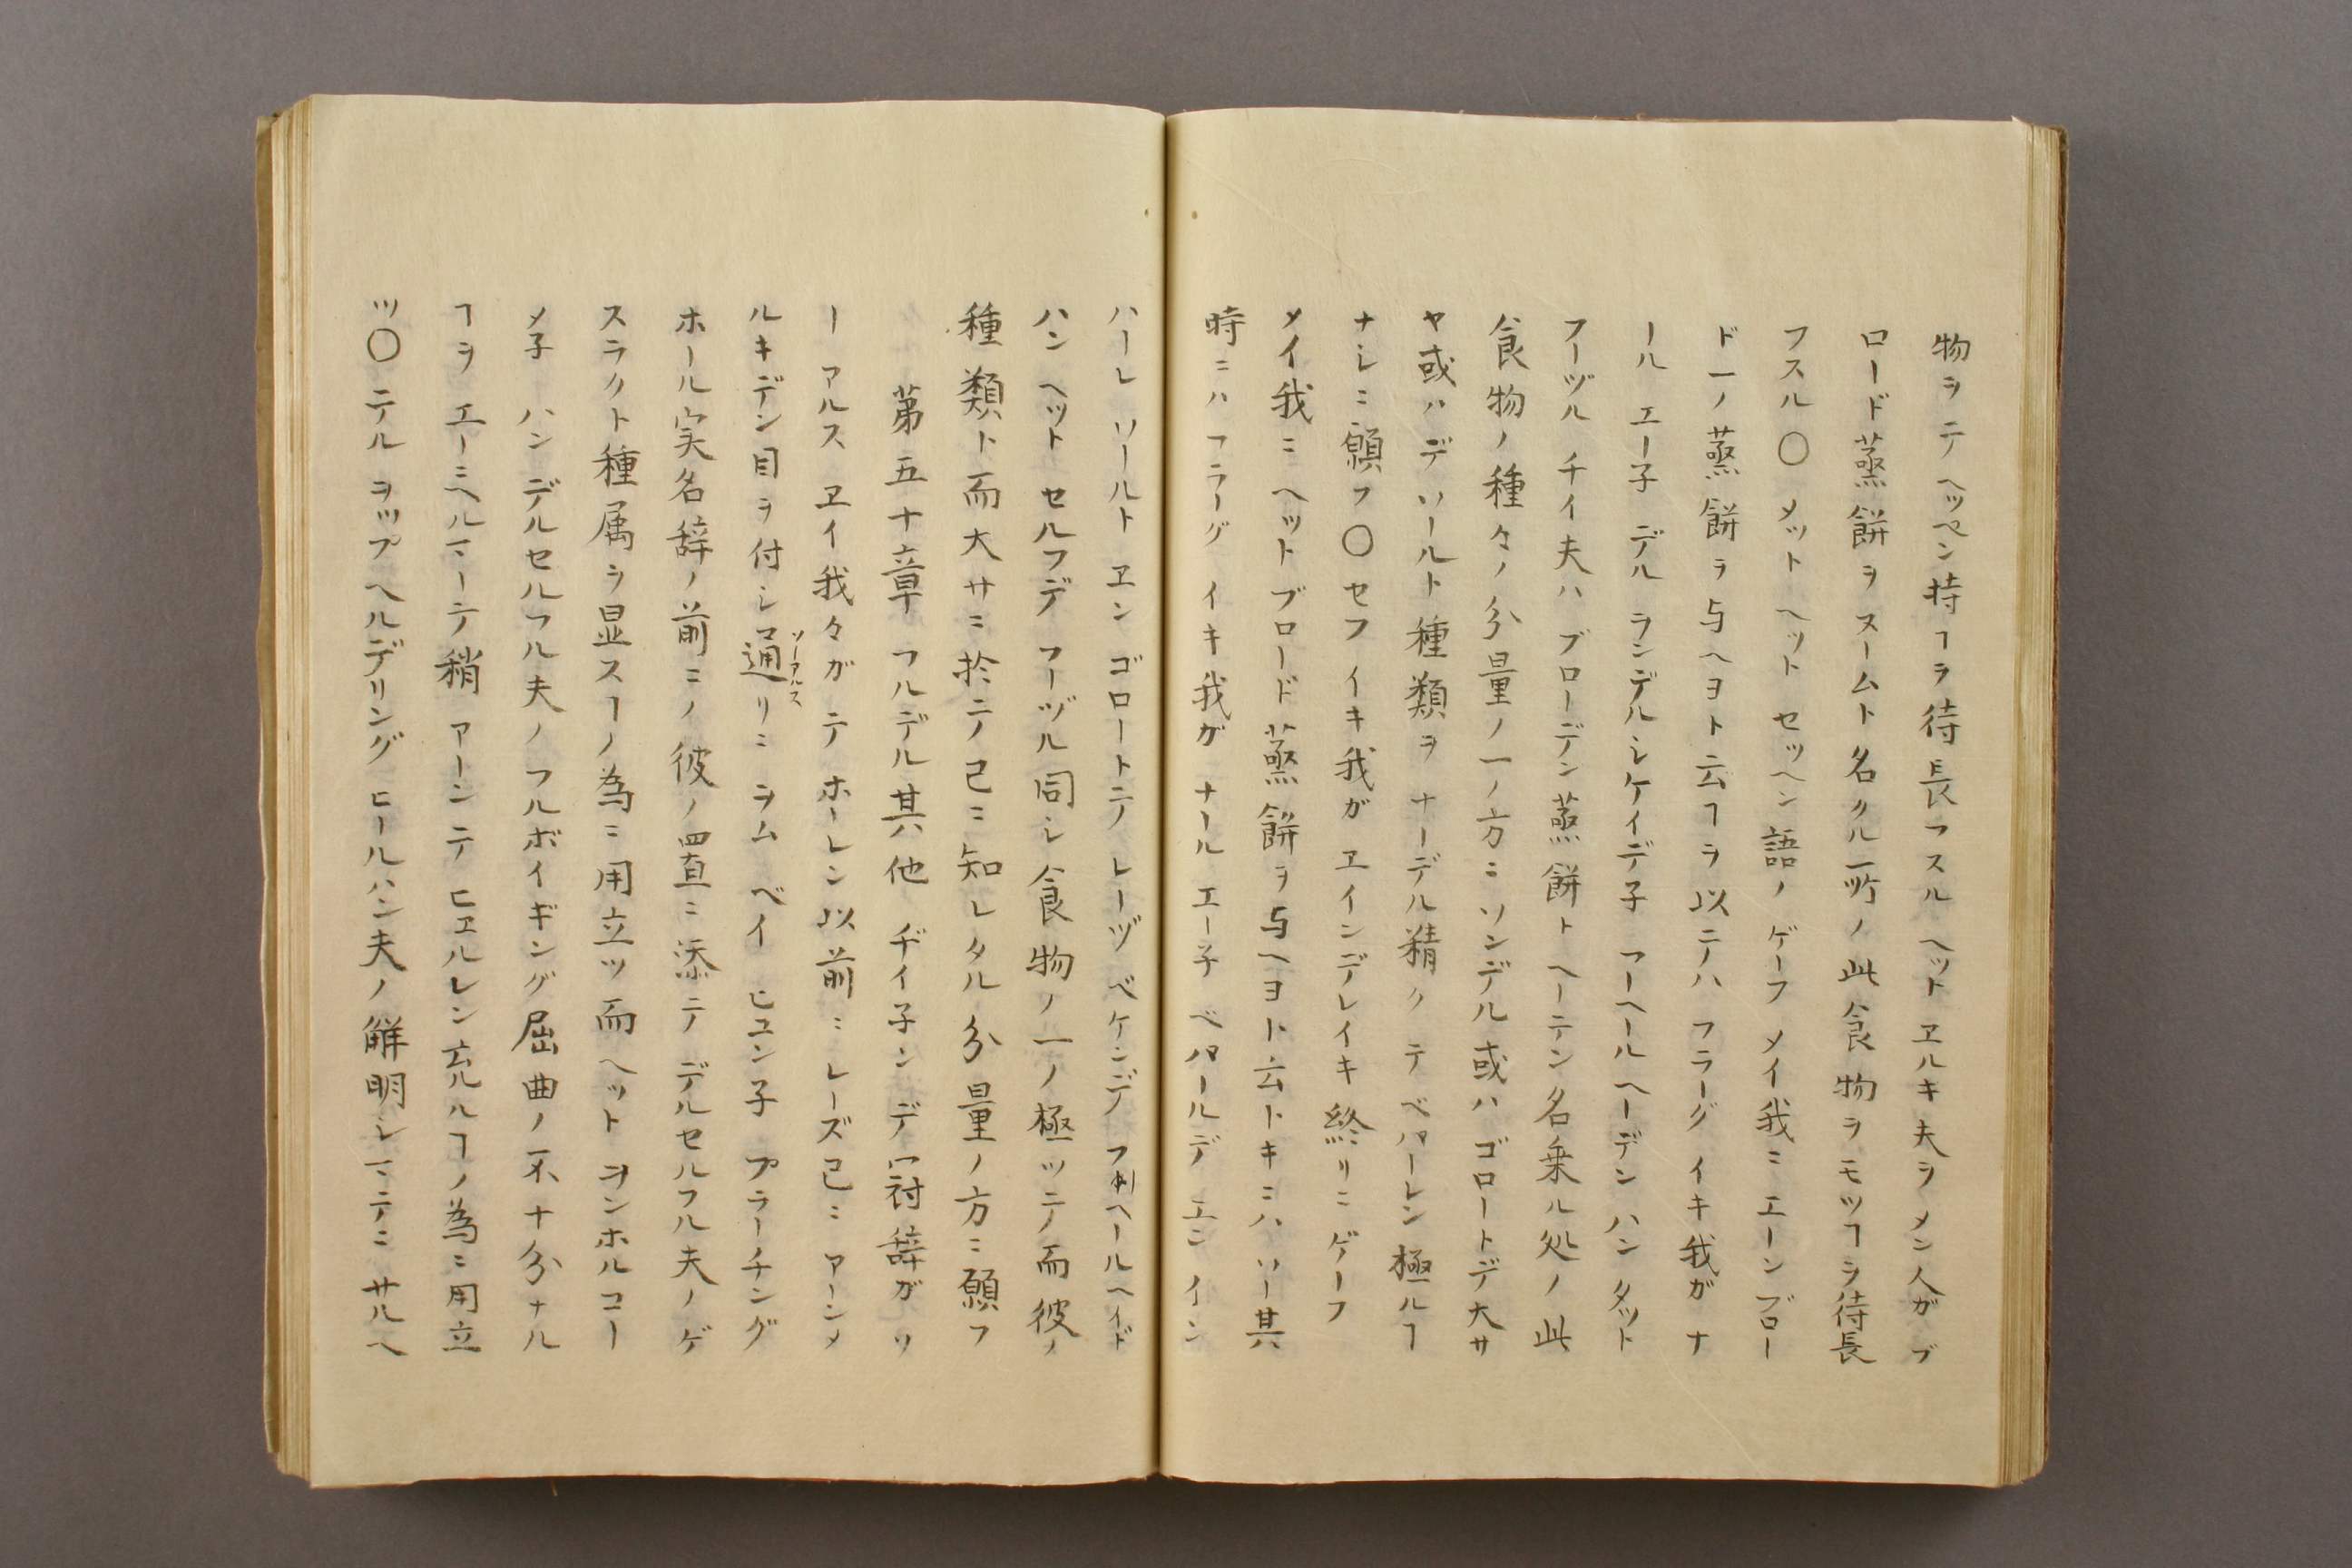 物ヲ テ ヘッペン 持ヿヲ 待長フスル ヘット ヱルキ 夫ヲ メン 人ガ ブ
ロード 蒸餅ヲ ヌームト 名クル 一所ノ 此食物ヲ モツヿヲ 待長
フスル〇 メット ヘット セッヘン 語ノ ゲーフ メイ 我ニ エーン ブロー
ド 一ノ蒸餅ヲ 与ヘヨト云ヿヲ以テハ フラーグ イキ 我ガ ナ
ール エー子 デル ランデルシケイデ子 フーヘールヘーデン ハン ダット
フーヅル チイ 夫ハ ブローデン 蒸餅ト ヘーテン 名乗ル処ノ 此
食物ノ 種々ノ分量ノ一ノ方ニ ソンデル 或ハ ゴロートデ 大サ
ヤ或ハ デ ソールト 種類ヲ ナーデル 精ク テ ベパーレン 極ルヿ
ナシニ願フ〇 セフ イキ 我ガ ヱインデレイキ 終リニ ゲーフ
メイ 我ニ ヘット ブロード 蒸餅ヲ与ヘヨト云トキニハ ソー 其
時ニハ フラーグ イキ 我ガ ナール エー子 ベパールデ エン イン
ハーレ ソールト ヱン ゴロートテ レーヅ ベケンデ フーヘールヘイド
ハン ヘット セルフデ フーヅル 同シ食物ノ一ノ極ツテ而彼ノ
種類ト而大サニ於テ已ニ知レタル分量ノ方ニ願フ
第五十章 フルデル 其他 ヂイ子ン デ 冠辞ガ ソ
ー アルス ヱイ 我々ガ テ ホーレン 以前ニ レーズ 已ニ アーンメ
ルキデン 目ヲ付シ通リニ ヲム ベイ ヒユン子 プラーチング
ソーアルス
ホール 実名辞ノ前ニノ彼ノ置直ニ添テ デルセルフル 夫ノ ゲ
スラクト 種属ヲ显スヿノ為ニ用立ツ而 ヘット ヲンホルコー
メ子 ハン デルセルフル 夫ノ フルボイギング 屈曲ノ不十分ナル
ヿヲ エーミヘルマーテ 稍 アーン テ ヒヱルレン 充ルヿノ為ニ用立
ツ〇 テル ヲップヘルデリング ヒールハン 夫ノ解明シマテニ サルヘ